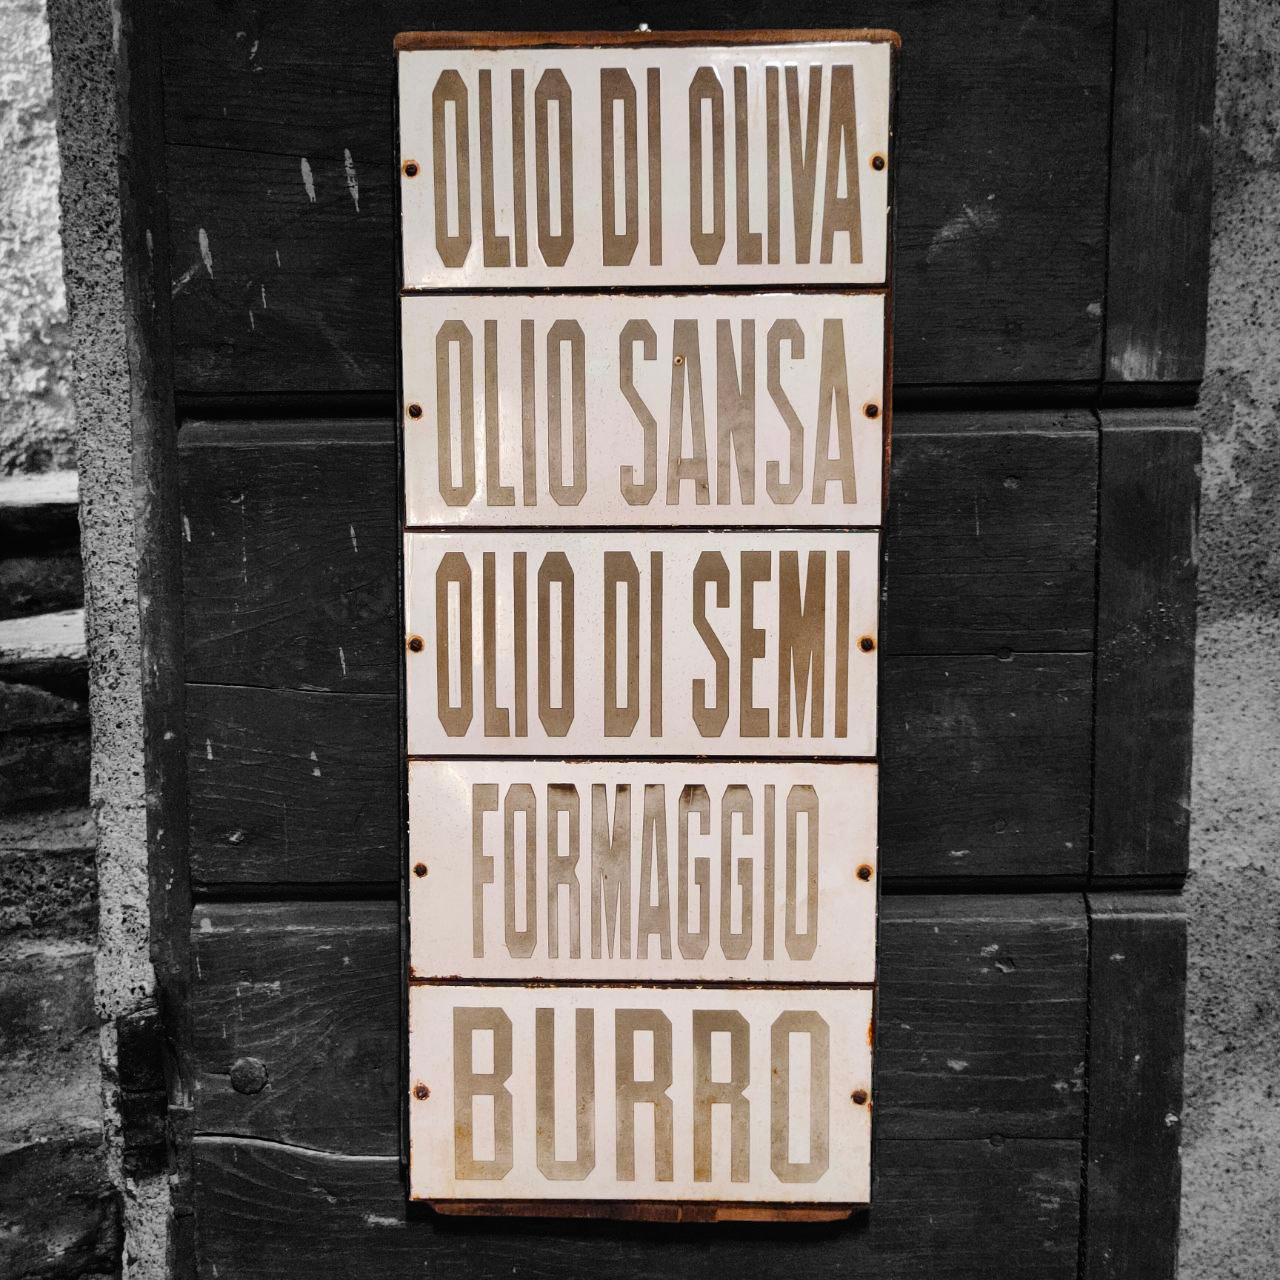 OLIO DI OLIVA
OLIO SANSA
OLIO DI SEMI
FORMAGGIO
BURRO